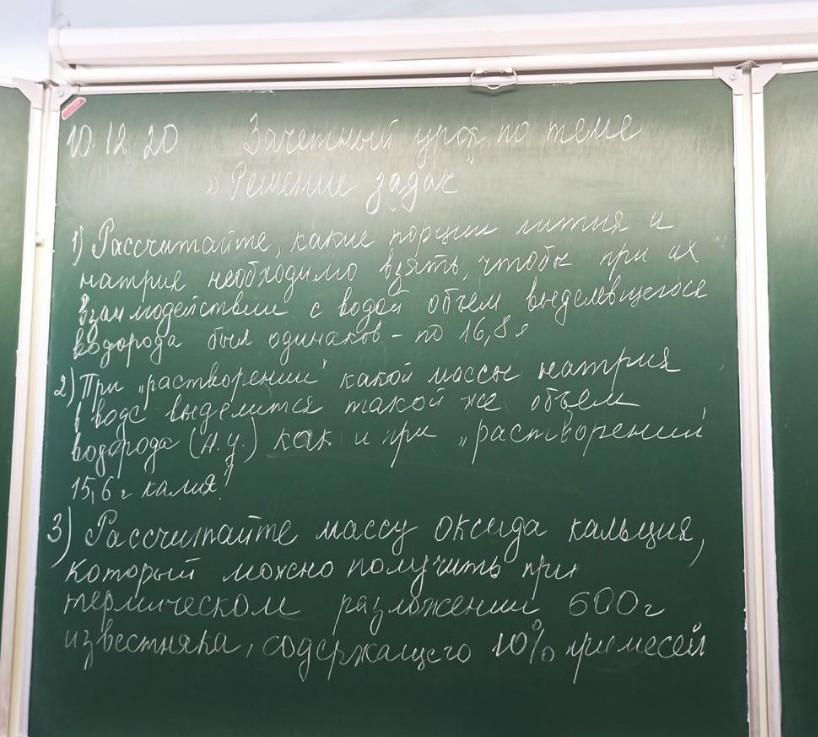 10.12.20 Зачетный урок по теме
„Решение задач"
1) Рассчитайте, какие порции лития и
натрия необходимо взять, чтобы при их
взаимодействии с водой объем выделевшегося
водорода был одинаков - по 16,8 л
2) При „растворении" какой массы натрия
в воде выделится такой же объем
водорода (н.у.) как и при „растворении"
15,6 г калия?
3) Рассчитайте массу оксида кальция,
который можно получить при
термическом разложении 600 г
известняка, содержащего 10% примесей